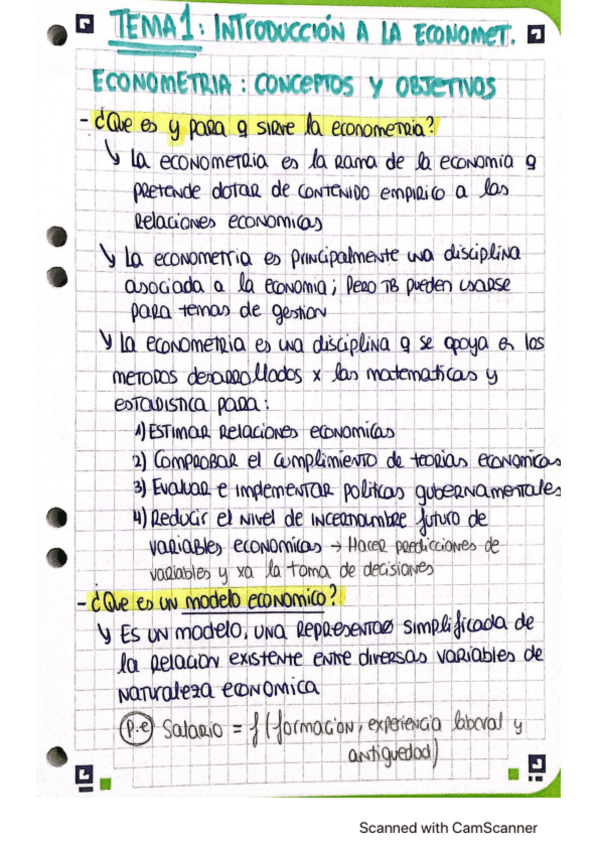 TEMA 1: INTRODUCCIÓN A LA ECONOMET.
ECONOMETRIA: CONCEPTOS Y OBJETIVOS
- ¿Que es y para q sirve la econometria?
↳ La econometria es la rama de la economia q
pretende dotar de contenido empirico a las
relaciones economicas
↳ La econometria es principalmente una disciplina
asociada a la economia; pero TB pueden usarse
para temas de gestion
↳ La econometria es una disciplina q se apoya en los
metodos desarrollados x las matematicas y
estadistica para:
1) Estimar relaciones economicas
2) Comprobar el cumplimiento de teorias economicas
3) Evaluar e implementar politicas gubernamentales
4) Reducir el nivel de incertidumbre futuro de
variables economicas → Hacer predicciones de
variables y xa la toma de decisiones
- ¿Que es un modelo economico?
↳ Es un modelo, una representao simplificada de
la relacion existente entre diversas variables de
naturaleza economica
P.e Salario = f(formacion, experiencia laboral y
antiguedad)
Scanned with CamScanner